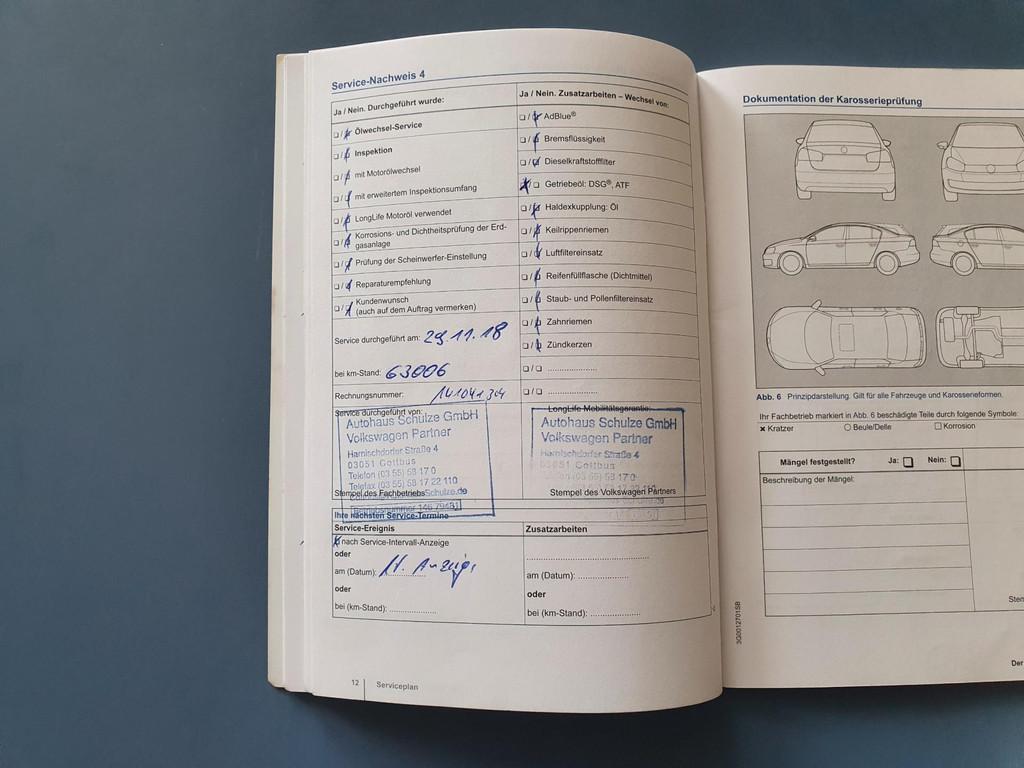 Service-Nachweis 4
Ja / Nein. Durchgeführt wurde:
Ölwechsel-Service
Inspektion
mit Motorölwechsel
mit erweitertem Inspektionsumfang
LongLife Motoröl verwendet
Korrosions- und Dichtheitsprüfung der Erd-
gasanlage
Prüfung der Scheinwerfer-Einstellung
Reparaturempfehlung
Kundenwunsch
(auch auf dem Auftrag vermerken)
Service durchgeführt am: 29.11.18
bei km-Stand: 63006
Rechnungsnummer: 141041304
Service durchgeführt von:
Autohaus Schulze GmbH
Volkswagen Partner
Harnischdorfer Straße 4
03051 Cottbus
Telefon (03 55) 58 17 0
Telefax (03 55) 58 17 22 110
Stempel des Fachbetriebs
Ja / Nein. Zusatzarbeiten – Wechsel von:
AdBlue®
Bremsflüssigkeit
Dieselkraftstofffilter
Getriebeöl: DSG®, ATF
Haldexkupplung: Öl
Keilrippenriemen
Luftfiltereinsatz
Reifenfüllflasche (Dichtmittel)
Staub- und Pollenfiltereinsatz
Zahnriemen
Zündkerzen
LongLife Mobilitätsgarantie:
Autohaus Schulze GmbH
Volkswagen Partner
Harnischdorfer Straße 4
03051 Cottbus
Stempel des Volkswagen Partners
Ihre nächsten Service-Termine
Service-Ereignis
nach Service-Intervall-Anzeige
oder
am (Datum):
oder
bei (km-Stand):
Zusatzarbeiten
am (Datum):
oder
bei (km-Stand):
12
Serviceplan
Dokumentation der Karosserieprüfung
Abb. 6 Prinzipdarstellung. Gilt für alle Fahrzeuge und Karosserieformen.
Ihr Fachbetrieb markiert in Abb. 6 beschädigte Teile durch folgende Symbole:
× Kratzer
Beule/Delle
Korrosion
Mängel festgestellt? Ja: Nein:
Beschreibung der Mängel:
3G0012701SB
Der